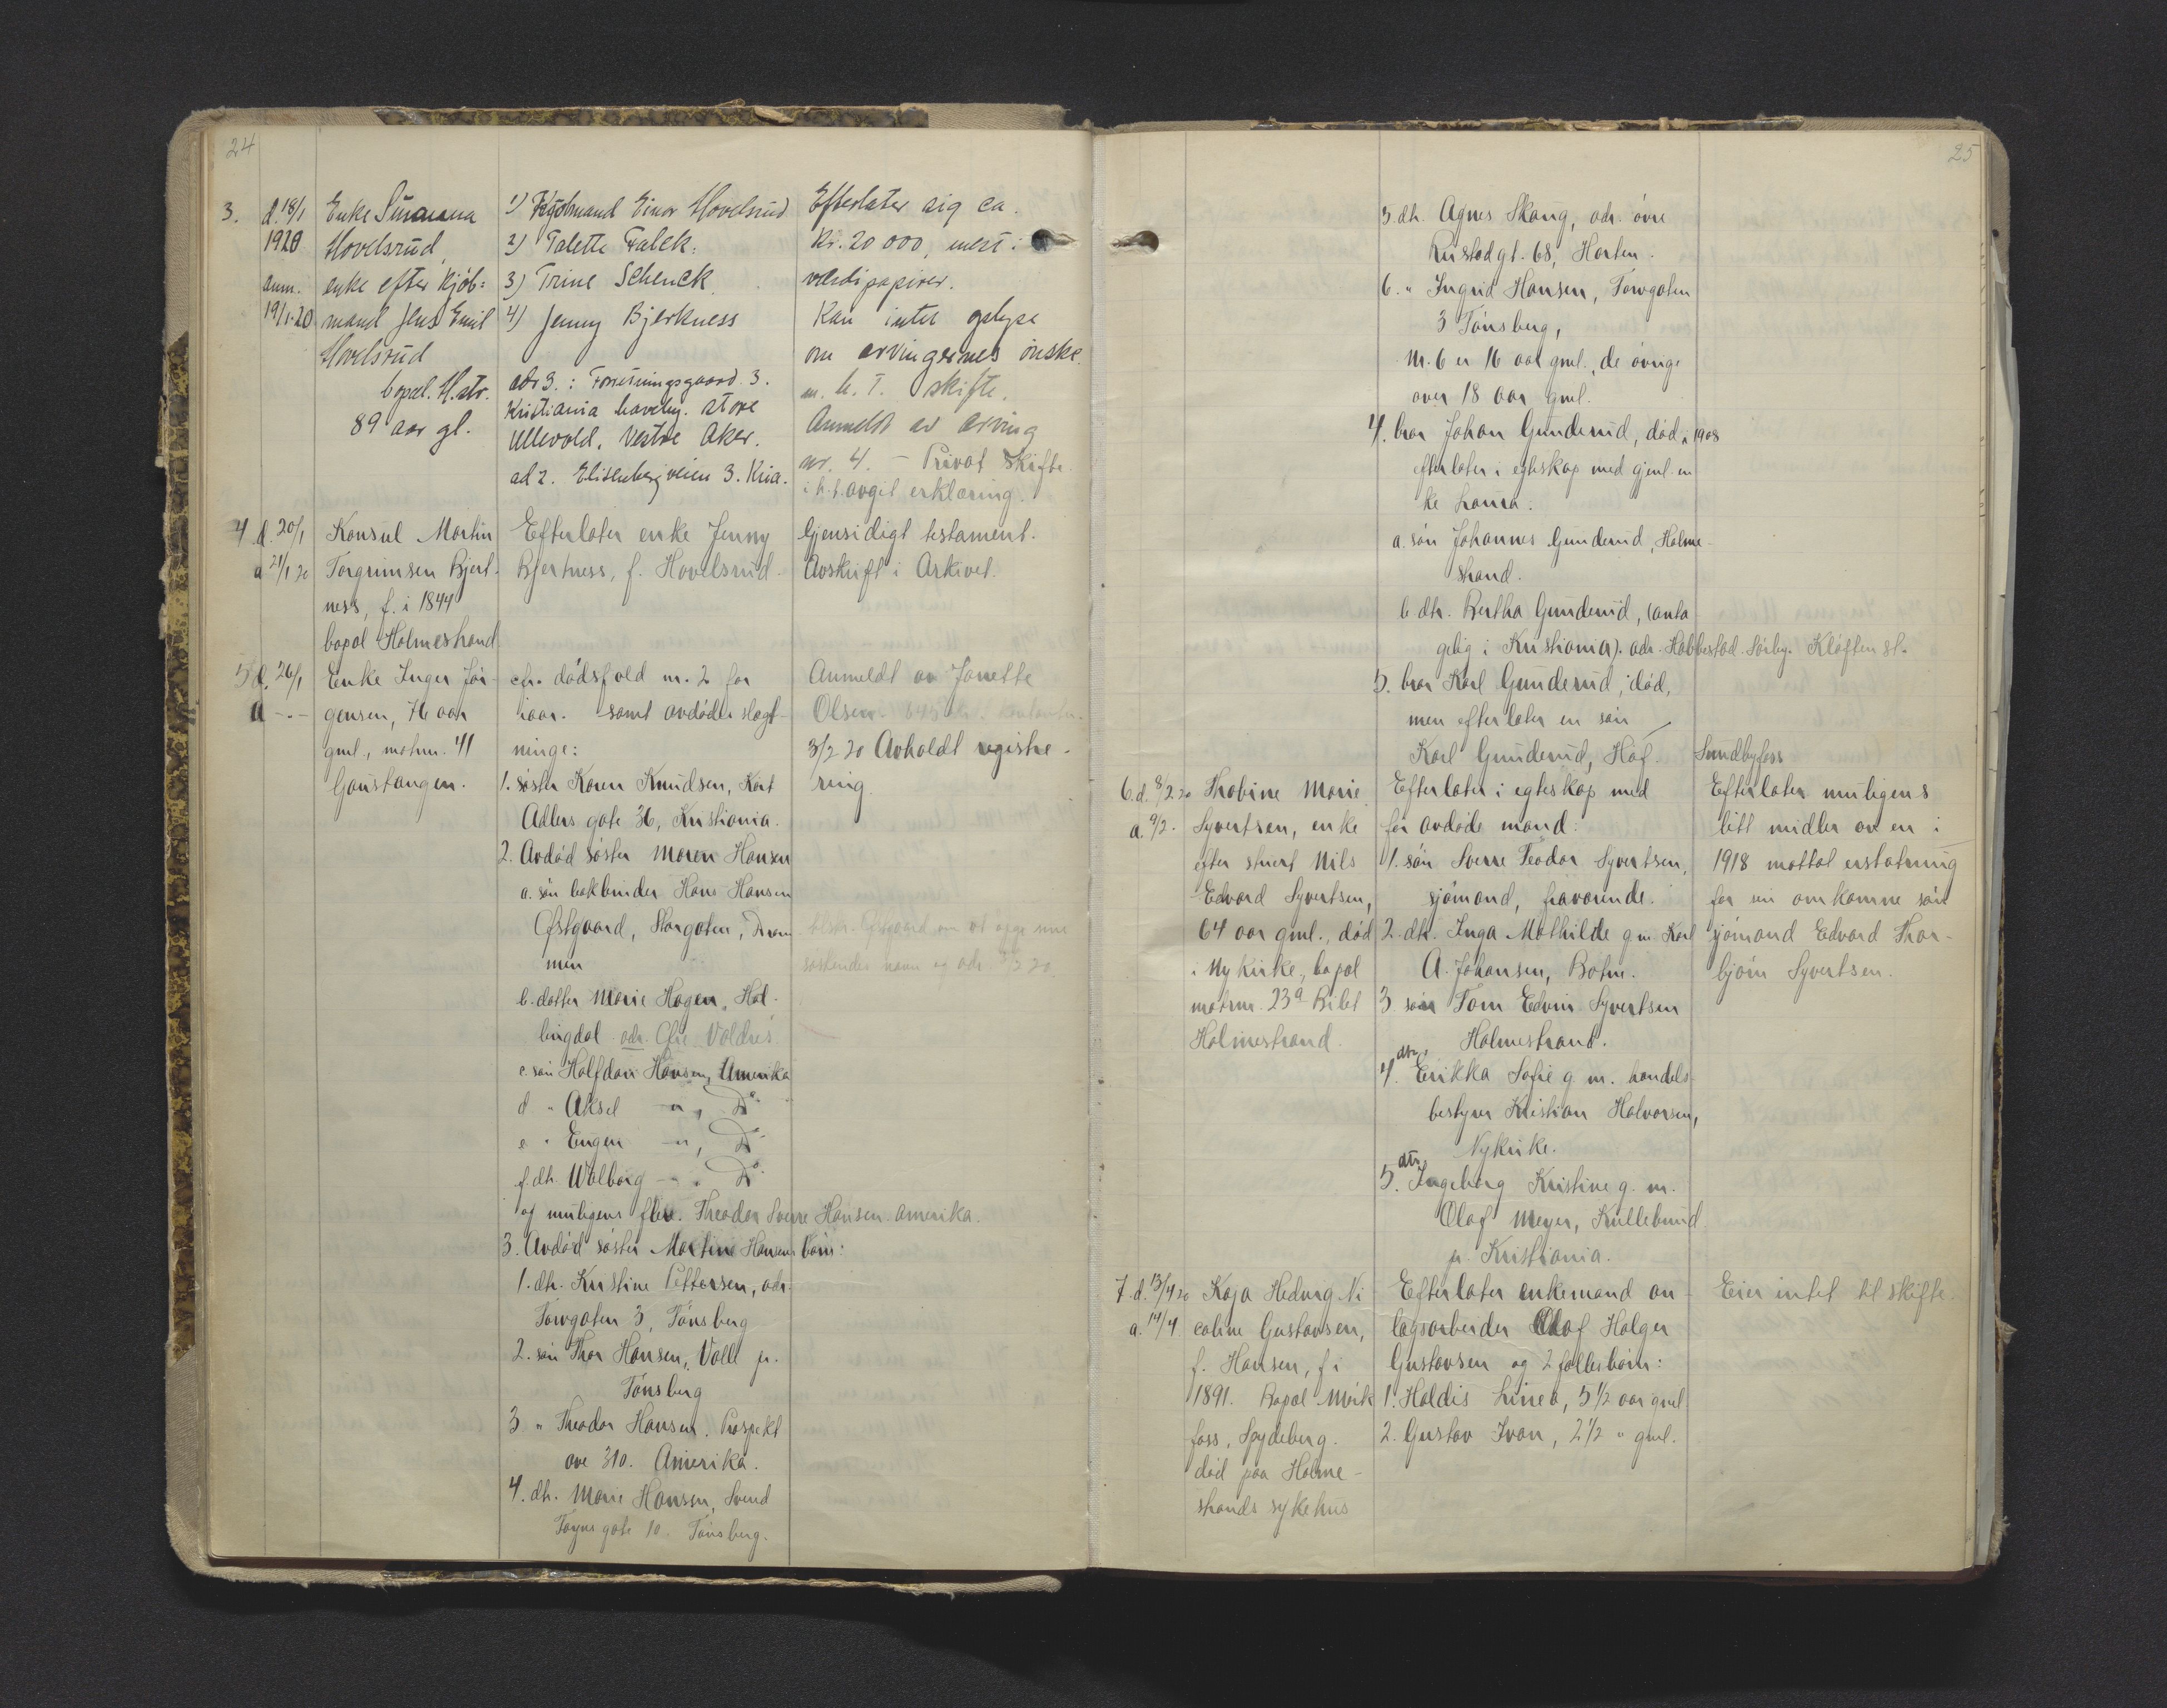 24
3. d. 18/1 1920 anm. 19/1-20
Enke
Hovelsrud,
enke efter kjöb=
mand Jens Emil
Hovelsrud
bopæl. H.str.
89 aar gl.
1) Kjöbmand Einar Hovelsrud
2) Talette Falck.
3) Trine Schenck
4) Jenny Bjerkness
adr 3.: Forretningsgaard. 3.
Kristiania haveby. store
Ullevold. Vestre Aker.
ad 2. Elisenbergveien 3. Kria.
Efterlater sig ca.
Kr. 20 000, mest i
værdipapirer.
Kan intet oplyse
om arvingernes önske
m. h. t. skifte.
Anmeldt av arving
nr. 4. - Privat skifte
i h.t. avgit erklæring.
4 d. 20/1
a 21/1 20
Konsul Martin
Torgrimsen Bjerk-
ness, f. i 1844
bopæl Holmestrand
Efterlater enke Jenny
Bjerkness, f. Hovelsrud.
Gjensidigt testament.
Avskrift i Arkivet.
5 d. 26/1
a -"-
Enke Inger Jör-
gensen, 76 aar
gml., matrn. 41
Gaustangen.
cfr. dödsfald nr. 2 for
iaar. samt avdödes slegt-
ninge:
1. söster Karen Knudsen, Kort
Adlers gate 36, Kristiania.
2. Avdöd söster Maren Hansen
a. sön bokbinder Hans Hansen
Öfstgaard, Storgaten, Dram-
men
b. datter Marie Hagen, Hal-
lingdal adr. Öie. Valdres.
c. sön Halfdan Hansen, Amerika
d " Aksel -"-, Do
e. " Eugen -"-, Do
f. dtr. Walborg -"- Do
og muligens flere. Theodor Sverre Hansen. Amerika.
3. Avdöd söster Martine Hansens börn:
1. dtr. Kristine Pettersen, adr.
Farvgaten 3, Tönsberg
2. sön Thor Hansen, Valle pr.
Tönsberg
3 " Theodor Hansen. Prospekt
ave 310. Amerika.
4. dtr. Marie Hansen, Svend
Foyns gate 10. Tönsberg.
Anmeldt av Janette
Olsen. 645 kr. kontanter.
3/2 20 Avholdt registre-
ring.
tilskr. Öfstgaard om at opgi sine
söskendes navn og adr. 3/2 20.
25
5 dtr. Agnes Skaug, adr. övre
Keisemarkgt. 68, Horten.
6. " Ingrid Hansen, Farvgaten
3 Tönsberg,
Nr. 6 er 16 aar gml., de övrige
over 18 aar gml.
4. bror Johan Gunderud, död i 1908
efterlater i egteskap med gjenl. en-
ke Laura:
a. sön Johannes Gunderud, Holme-
strand.
b dtr. Bertha Gunderud, (anta-
gelig i Kristiania). adr. Habbestad. Sörby. Klöften st.
5. bror Karl Gunderud, död,
men efterlater en sön
Karl Gunderud, Hof. Sundbyfoss
6. d. 8/2.20
a. 9/2.
Thobine Marie
Syvertsen, enke
efter stuert Nils
Edvard Syvertsen,
64 aar gml., död
i Nykirke, bopæl
matrnr. 23a Bilet
Holmestrand.
Efterlater i egteskap med
för avdöde mand:
1. sön Sverre Teodor Syvertsen,
sjömand, fraværende.
2. dtr. Inga Mathilde g.m. Karl
A. Johansen, Botne.
3 sön Tom Edvin Syvertsen
Holmestrand.
4. dtr. Erikka Sofie g. m. handels-
bestyrer Kristian Halvorsen,
Nykirke.
5. dtr. Ingeborg Kristine g. m.
Olaf Meyer, Kullebund
pr. Kristiania.
Efterlater muligens
litt midler av en i
1918 mottat erstatning
for sin omkomne sön
sjömand Edvard Thor-
björn Syvertsen.
7. d. 13/4 20
a. 14/4
Kaja Hedvig Ni-
coline Gustavsen,
f. Hansen, f. i
1891. Bopæl Mörk-
foss, Spydeberg.
död paa Holme-
strands sykehus
Efterlater enkemand an-
lægsarbeider Olaf Holger
Gustavsen og 2 fællesbörn:
1. Haldis Linea, 5 1/2 aar gml
2. Gustav Ivar, 2 1/2 " gml.
Eier intet til skifte.